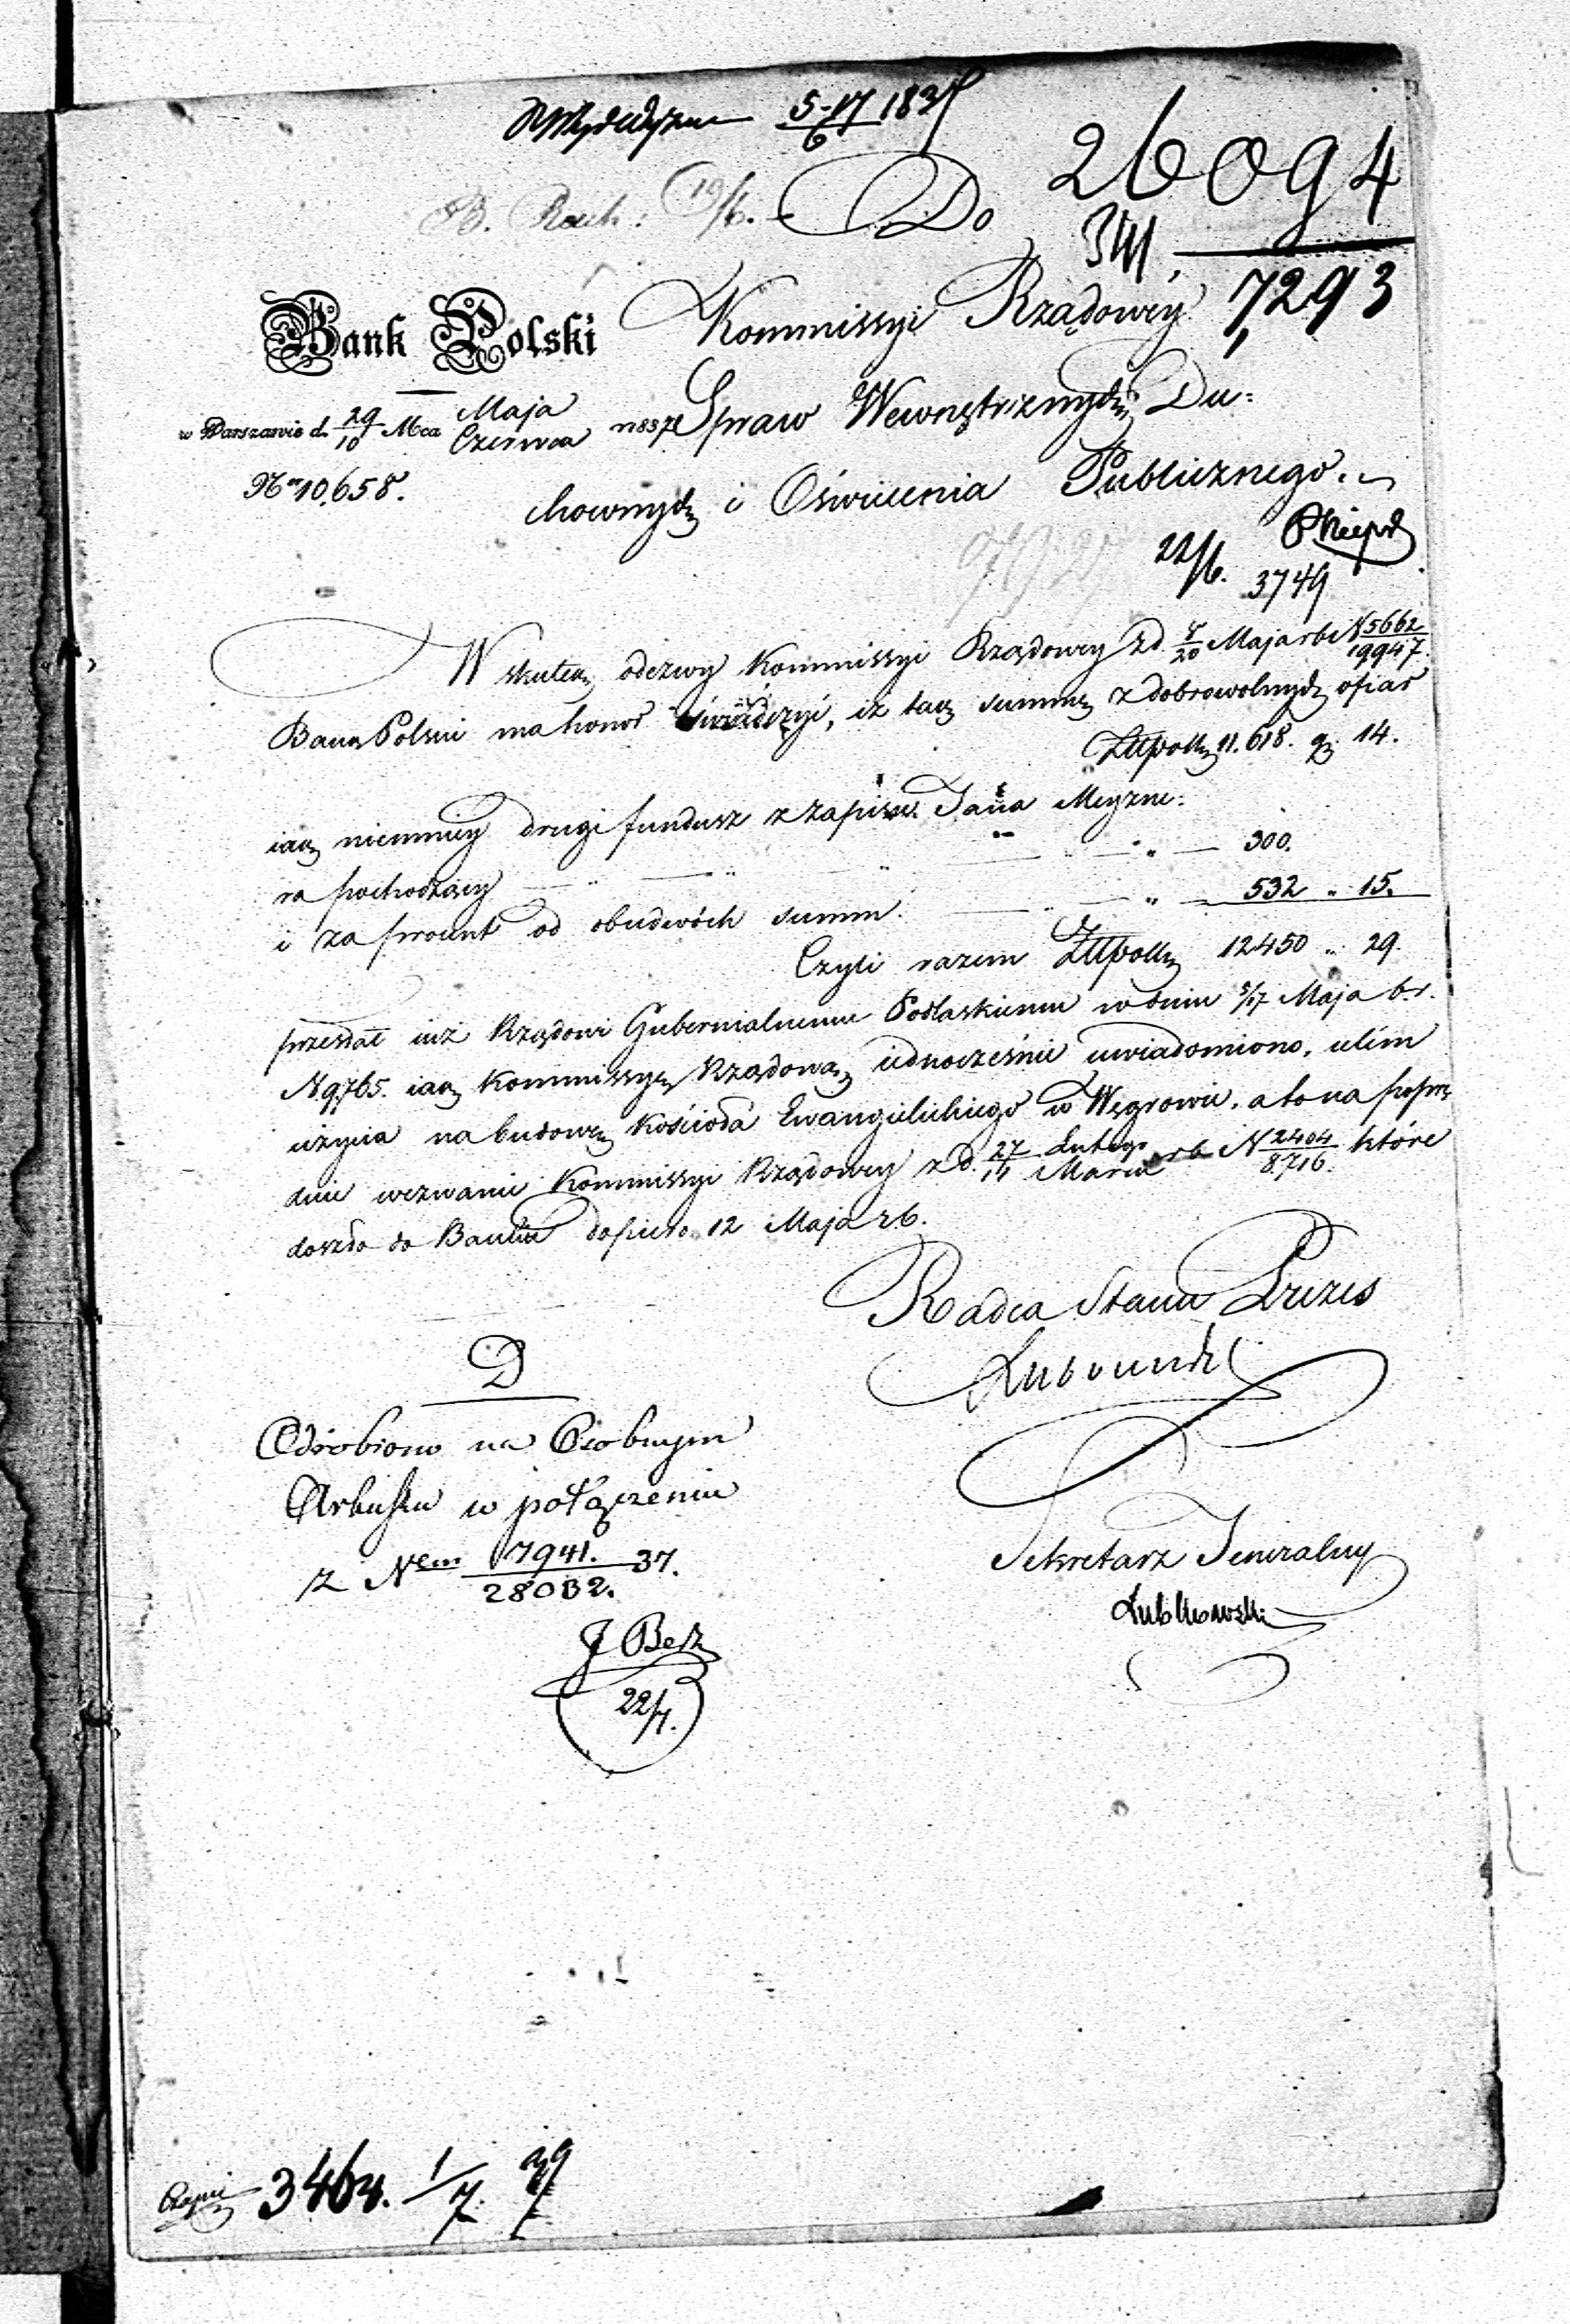 5-17/6 1837
26094
B. Rach: 19/6.
Do
341.
7293
Bank Polski
Kommissyi Rządowéy
w Warszawie d. 29/10 Mca Maja/Czerwca 1837 r.
Spraw Wewnętrznych, Du-
Nr 10,658.
chownych i Oświecenia Publicznego.
22/6.
3749
W skutek odezwy Kommissyi Rządowey z d. 8/20 Maja r b. N 5662/19947.
Bank Polski ma honor oświadczyć, iż tak summę z dobrowolnych ofiar
Złłpolk 11.618. gr 14.
iak niemniey drugi fundusz z zapisu Jana Meyzne-
ra pochodzący 300.
i za procent od obudwóch summ. 532 " 15.
Czyli razem Złłpolk 12450 " 29.
przesłał iuż Rządowi Gubernialnemu Podlaskiemu w dniu 5/17 Maja b.r.
N 9765. iak Kommissyę Rządową iednocześnie uwiadomiono, celem
użycia na budowę Kościoła Ewangielickiego w Węgrowie, a to na poprze-
dnie wezwanie Kommissyi Rządowey z d. 27/11 Lutego/Marca r b. N 2404/8716. które
doszło do Banku dopiero 12 Maja r b.
Radca Stanu Prezes
Lubowidzki
D
Odrobiono na Osobnym
Arkuszu w połączeniu
z Nem 7941./28032. 37.
Sekretarz Jeneralny
Lubkowski
J Besz
22/7.
3464. 1/7. 37